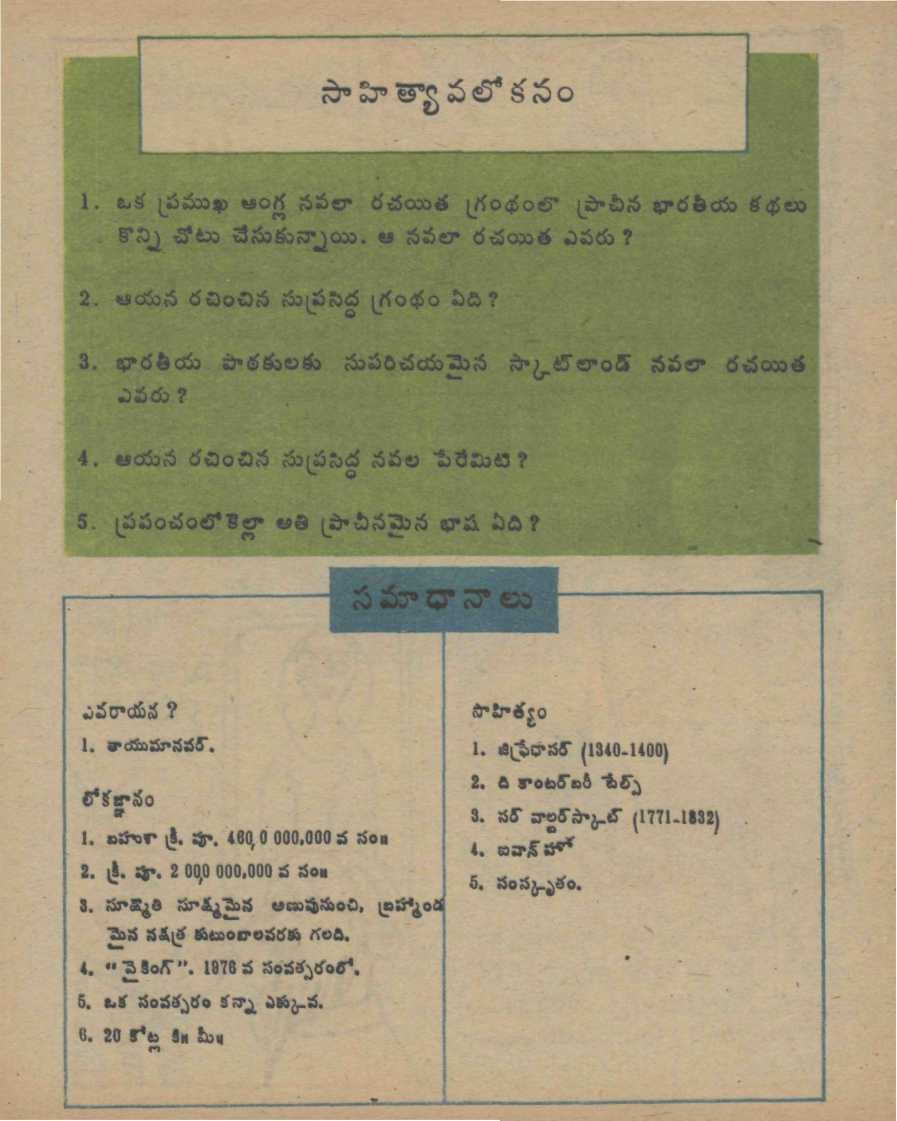 సాహిత్యావలోకనం
1. ఒక ప్రముఖ ఆంగ్ల నవలా రచయిత గ్రంథంలో ప్రాచీన భారతీయ కథలు
కొన్ని చోటు చేసుకున్నాయి. ఆ నవలా రచయిత ఎవరు ?
2. ఆయన రచించిన సుప్రసిద్ధ గ్రంథం ఏది ?
3. భారతీయ పాఠకులకు సుపరిచయమైన స్కాట్‌లాండ్ నవలా రచయిత
ఎవరు ?
4. ఆయన రచించిన సుప్రసిద్ధ నవల పేరేమిటి ?
5. ప్రపంచంలోకెల్లా అతి ప్రాచీనమైన భాష ఏది ?
సమాధానాలు
ఎవరాయన ?
1. తాయుమానవర్.
లోకజ్ఞానం
1. బహుశా క్రీ. పూ. 460,0 000,000 వ సం॥
2. క్రీ. పూ. 2 000 000,000 వ సం॥
3. సూక్ష్మాతి సూక్ష్మమైన అణువునుంచి, బ్రహ్మాండ
మైన నక్షత్ర కుటుంబాలవరకు గలది.
4. " వైకింగ్ ". 1976 వ సంవత్సరంలో.
5. ఒక సంవత్సరం కన్నా ఎక్కువ.
6. 20 కోట్ల కి॥ మీ॥
సాహిత్యం
1. జిఫ్రేచాసర్ (1340-1400)
2. ది కాంటర్‌బరీ టేల్స్
3. సర్ వాల్టర్‌స్కాట్ (1771-1832)
4. ఐవాన్ హో
5. సంస్కృతం.